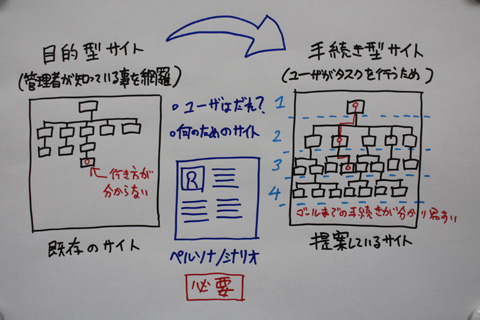 目的型サイト
(管理者が知っている事を網羅)
手続き型サイト
(ユーザがタスクを行うため)
ユーザはだれ?
何のためのサイト
行き方が
分からない
既存のサイト
ペルソナ/シナリオ
必要
1
2
3
4
ゴールまでの手続きが分かり易い
提案しているサイト